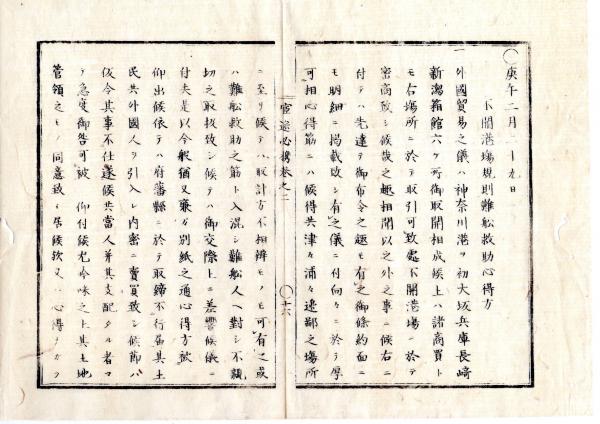 〇庚午二月二十九日
不開港場規則難船救助心得方
一外國貿易之儀ハ神奈川港ヲ初大坂兵庫長崎
新潟箱館六ケ所御取開相成候上ハ諸商買トモ
右場所ニ於テ取引可致處不開港場ニ於テ
密商致シ候哉之趣相聞以之外之事ニ候右ニ
付テハ先達テ御布令之趣モ有之御條約面ニ
モ明細ニ掲載致シ有之儀ニ付向々ニ於テ厚
可相心得筋ニハ候得共津々浦々邊鄙之場所
宦途必携巻之二
〇十六
ニ至リ候テハ取計方不相辨モノモ可有之或
ハ難船救助之筋ト入混シ難船人ヘ對シ不親
切之取扱致シ候テハ御交際上ニ差響候儀ニ
付夫是以今般猶又兼方別紙之通心得方被
仰出候依テハ府藩縣ニ於テ取締不行届其土
民共外國人ヲ引入レ内密ニ賣買致シ候節ハ
仮令其事不仕遂候共當人并其支配タル者コ
テ急度御咎可被 仰付候尤吟味之上其土地
管領之モノ同意致シ居候歟又ハ心得ナカラ